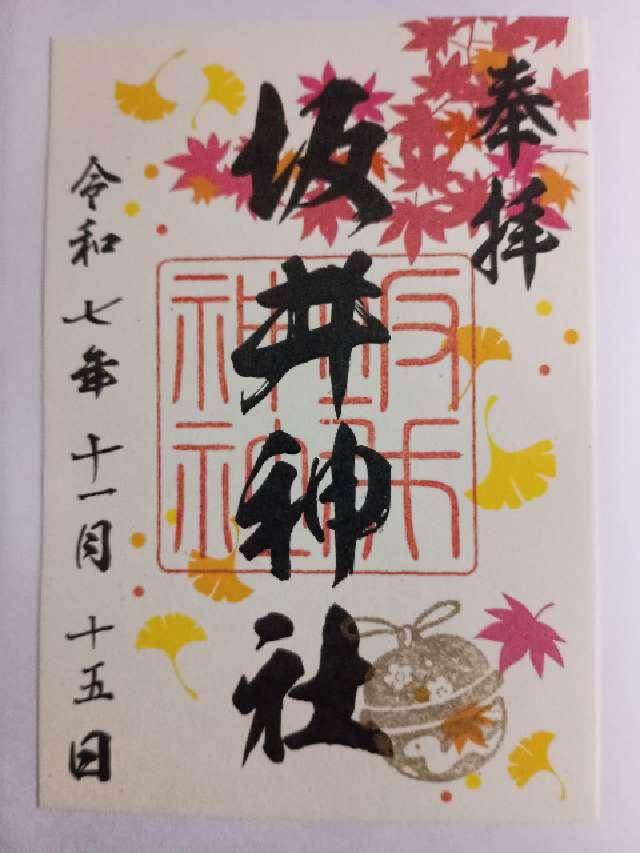 奉拝
坂井神社
令和七年十一月十五日